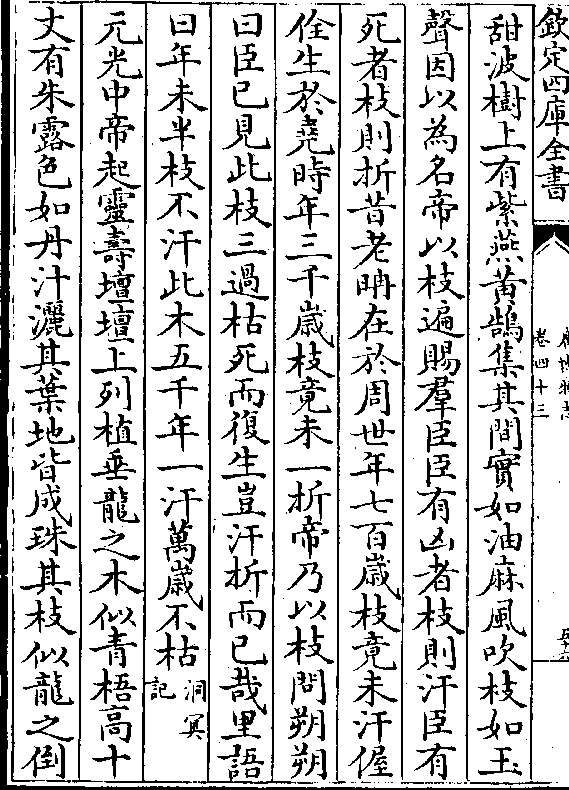 欽定四庫全書
卷四十三
甜波樹上有紫燕黄鵠集其間實如油麻風吹枝如玉
聲因以為名帝以枝遍賜羣臣臣有凶者枝則汗臣有
死者枝則折昔老耼在於周世年七百歲枝竟未汗偓
佺生於堯時年三千歲枝竟未一折帝乃以枝問朔朔
曰臣已見此枝三過枯死而復生豈汗折而已哉里語
曰年未半枝不汗此木五千年一汗萬歲不枯洞冥記
元光中帝起靈壽壇壇上列植垂龍之木似青梧高十
丈有朱露色如丹汁灑其葉地皆成珠其枝似龍之倒